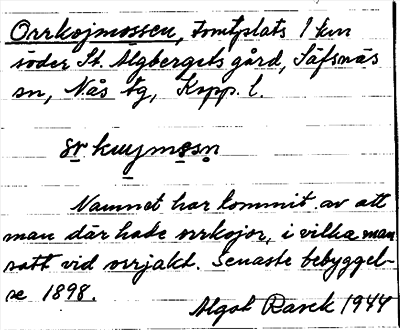 Orrkojmossen, Tomtplats 1 km
söder St. Älgbergets gård, Säfsnäs
sn, Nås tg, Kopp. l.
Namnet har kommit av att
man där hade orrkojor, i vilka man
satt vid orrjakt. Senaste bebyggel-
se 1898.
Algot Rasek 1944